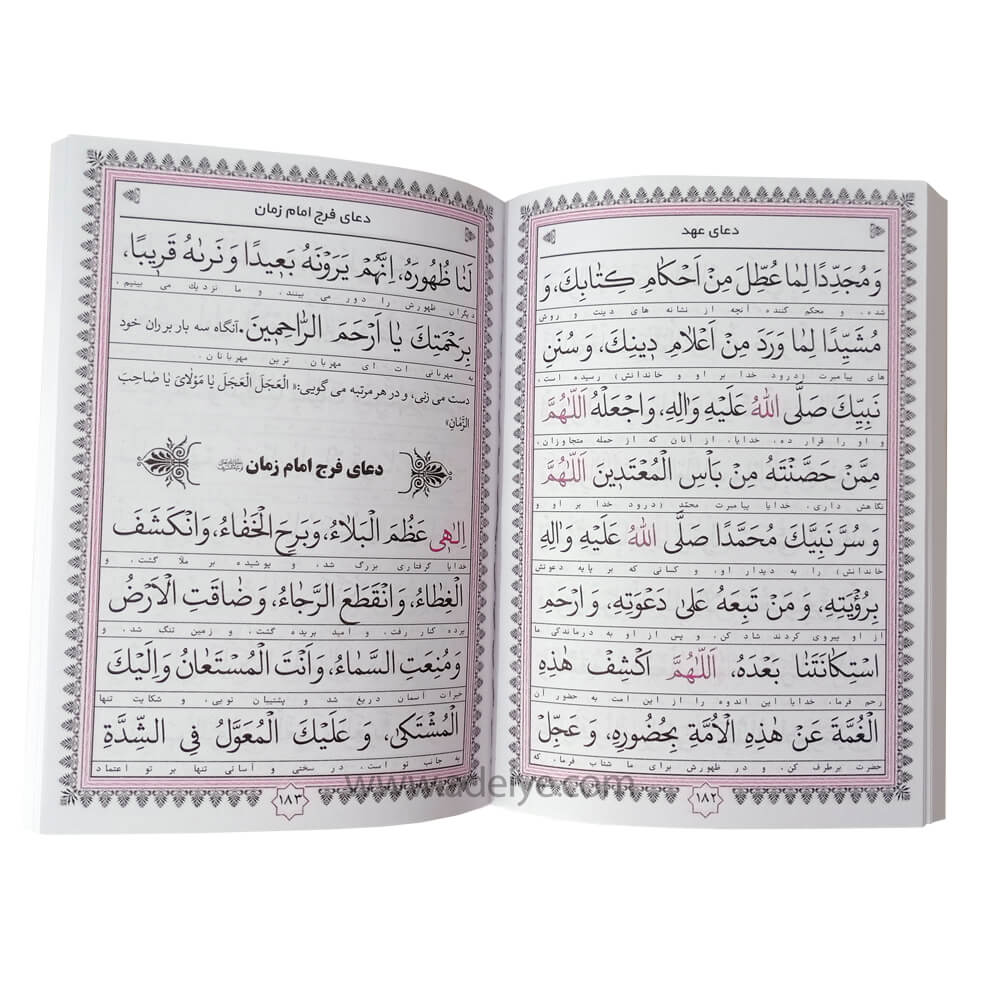 دعای عهد
وَ مُجَدِّدًا لِمٰا عُطِّلَ مِنْ اَحْكٰامِ كِتٰابِكَ، وَ
شده، و محکم کننده، آنچه از نشانه های دینت و روش
مُشَيِّدًا لِمٰا وَرَدَ مِنْ اَعْلٰامِ دٖينِكَ، وَ سُنَنِ
های پیامبرت (درود خدا بر او و خاندانش) رسیده است،
نَبِيِّكَ صَلَّى اللهُ عَلَيْهِ وَ اٰلِهِ، وَ اجْعَلْهُ اَللّٰهُمَّ
و او را قرار ده، خدایا، از آنان که از حمله متجاوزان،
مِمَّنْ حَصَّنْتَهُ مِنْ بَأْسِ الْمُعْتَدٖينَ اَللّٰهُمَّ
نگاهش داری، خدایا پیامبرت محمّد (درود خدا بر او و
وَ سُرَّ نَبِيَّكَ مُحَمَّدًا صَلَّى اللهُ عَلَيْهِ وَ اٰلِهِ
خاندانش) را به دیدار او، و کسانی که بر پایه دعوتش
بِرُؤْيَتِهِ، وَ مَنْ تَبِعَهُ عَلىٰ دَعْوَتِهِ، وَ ارْحَمِ
از او پیروی کردند شاد کن، و پس از او به درماندگی ما
اسْتِكٰانَتَنٰا بَعْدَهُ، اَللّٰهُمَّ اكْشِفْ هٰذِهِ
رحم فرما، خدایا این اندوه را از این امت به حضور آن
الْغُمَّةَ عَنْ هٰذِهِ الْاُمَّةِ بِحُضُورِهِ، وَ عَجِّلْ
حضرت برطرف کن، و در ظهورش برای ما شتاب فرما، که
۱۸۲
دعای فرج امام زمان
لَنٰا ظُهُورَهُ، اِنَّهُمْ يَرَوْنَهُ بَعٖيدًا وَ نَرٰىهُ قَرٖيبًا،
دیگران ظهورش را دور می بینند، و ما نزدیک می بینیم،
بِرَحْمَتِكَ يٰا اَرْحَمَ الرّٰاحِمٖينَ. آنگاه سه بار بر ران خود
به مهربانی ات ای مهربان ترین مهربانان.
دست می زنی، و در هر مرتبه می گویی:« الْعَجَلَ الْعَجَلَ يٰا مَوْلٰاىَ يٰا صٰاحِبَ
الزَّمٰانِ»
دعای فرج امام زمان
اِلٰهٖى عَظُمَ الْبَلٰاءُ، وَ بَرِحَ الْخَفٰاءُ، وَ انْكَشَفَ
خدایا گرفتاری بزرگ شد، و پوشیده بر ملا گشت، و
الْغِطٰاءُ، وَ انْقَطَعَ الرَّجٰاءُ، وَ ضٰاقَتِ الْاَرْضُ
پرده کنار رفت، و امید بریده گشت، و زمین تنگ شد، و
وَ مُنِعَتِ السَّمٰاءُ، وَ اَنْتَ الْمُسْتَعٰانُ وَ اِلَيْكَ
خیرات آسمان دریغ شد و پشتیبان تویی، و شکایت تنها
الْمُشْتَكىٰ، وَ عَلَيْكَ الْمُعَوَّلُ فِى الشِّدَّةِ
به جانب تو است، در سختی و آسانی تنها بر تو اعتماد
۱۸۳
www.adeiye.com